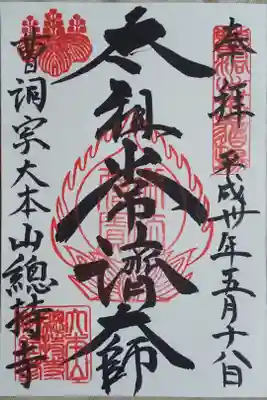 奉拜
平成卅年五月十八日
太祖常濟大師
曹洞宗大本山總持寺